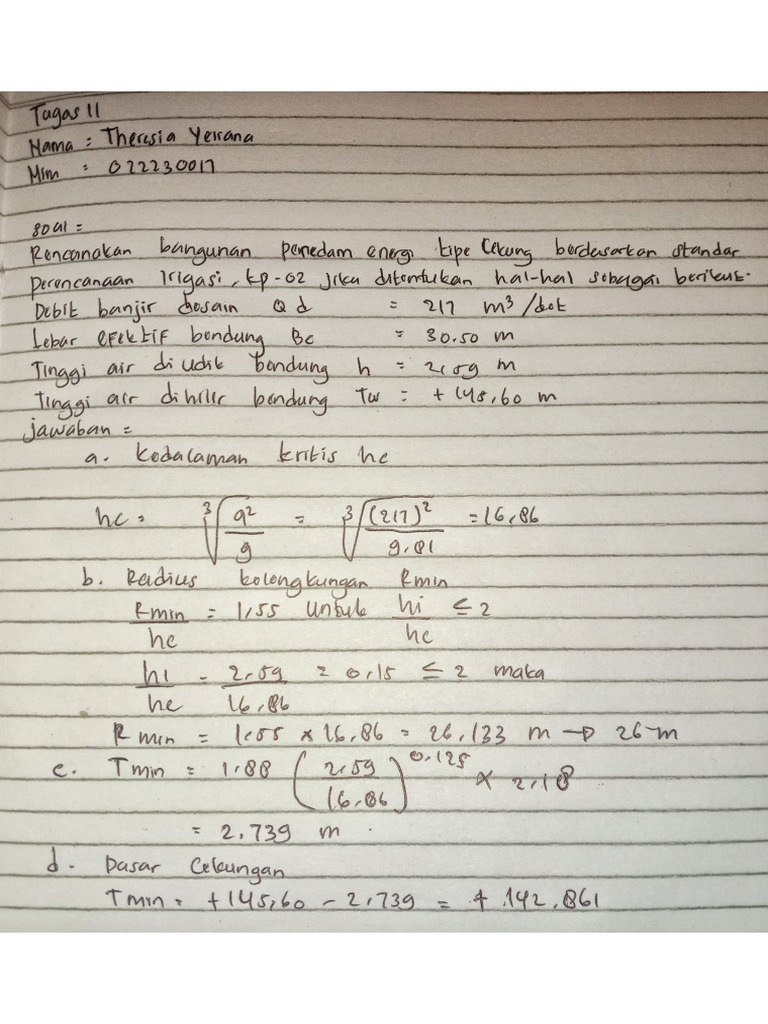 Tugas 11
Nama : Theresia Yerrana
Mim : 022230017
soal =
Rencanakan bangunan peredam energi tipe Cekung berdasarkan standar
perencanaan Irigasi, kp-02 jika ditentukan hal-hal sebagai berikut.
Debit banjir desain Qd = 217 m³/det
Lebar efektif bendung Be = 30.50 m
Tinggi air di udik bendung h = 2,59 m
Tinggi air dihilir bendung Tw = + 145,60 m
jawaban =
a. kedalaman kritis hc
hc = ∛(q²/g) = ∛((217)²/9.81) = 16,86
b. Radius kelengkungan Rmin
Rmin/hc = 1,55 untuk hi/hc ≤ 2
hi/hc = 2,59/16,86 = 0,15 ≤ 2 maka
R min = 1.55 × 16,86 = 26,133 m → 26 m
c. T min = 1.88 (2,59/16,86)^0.125 × 2,18
= 2,739 m.
d. Dasar Cekungan
T min = +145,60 - 2,739 = + 142,861